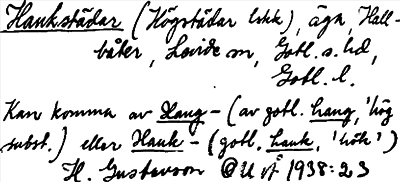 Haukstädar (Högstädar lskk), äga, Hall-
båter, Levide sn, Gotl. s. hd,
Gotl. l.
Kan komma av Haug- (av gotl. haug, 'hög
subst.) eller Hauk- (gotl. hauk, 'hök')
H. Gustavson OUÅ 1938:23